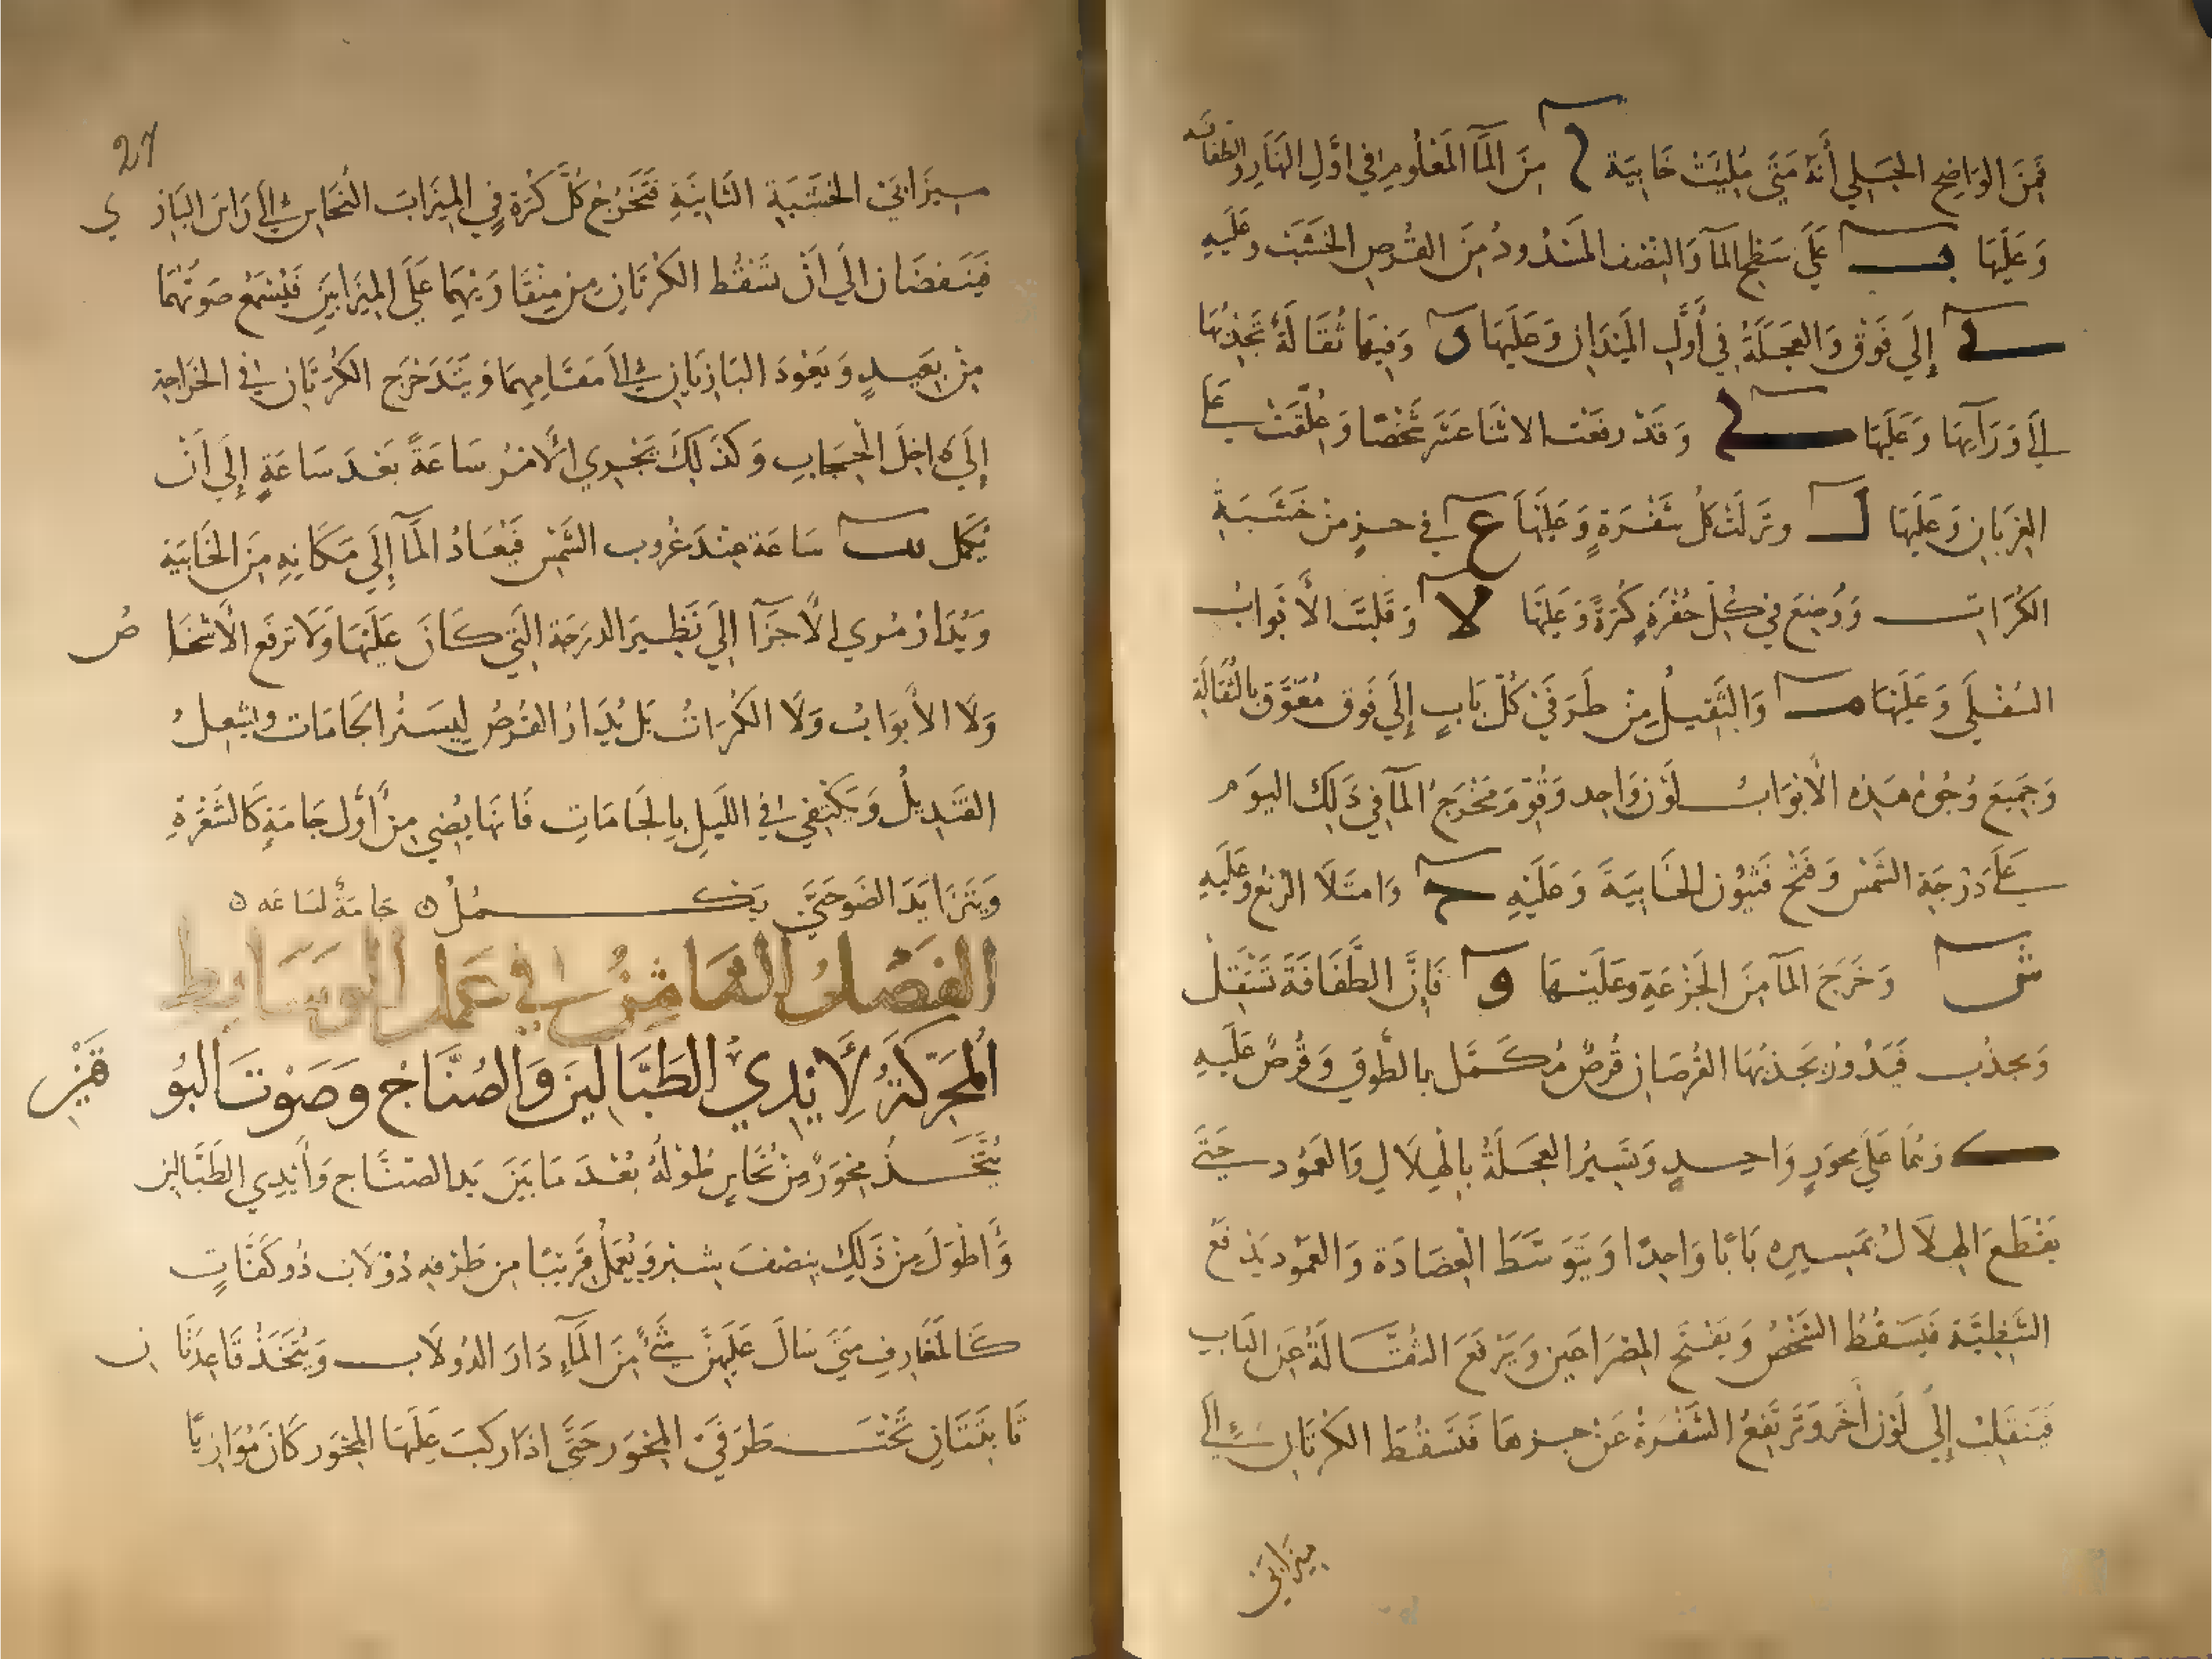 فَمِنَ الوَاضِحِ الجَلي أَنَّهُ مَتَي مُلِيَتْ خَابِيَة من المآ المَعْلُومِ في اوَّلِ النَهَارِ والطفافه
وَعَلَيهَا ب عَلَي سَطحِ المآ وَالنِصْف المَسْدُودُ مِنَ القُرصِ الخَشَبَ وعَلَيهِ
ك إلَي فَوَق وَالعَجَلَةُ في أوَّلِ المَيْدَانِ وَعَلَيهَا ن وَفيهَا ثُقَالَةٌ تَجْذِبُهَا
الي وَرَآيِهَا وَعَلَيهَا وَقَدْ رفعَت الاثنَا عَشَر شَخْصًا وَعُلِّقَتْ عَلي
الغِربَانِ وَعَلَيهَا لـ ونَزلَتْ كلُ شَفْرَةٍ وَعَلَيْهَا ع في حزٍ منْ خَشَبَةِ
الكُرَات وَوُضِعَ في كُلِ حُفْرَةٍ كُرَةً وَعَلَيهَا لا وَقَلبَت الأبْوَابُ
السُفْلَي وَعَلَيْهَا مـ وَالثَقيلُ مِنْ طَرَفَيْ كُلّ بَابٍ إلَي فَوق مُعَوَّق بالثُقَالَةِ
وَجَمِيعَ وُجُوهُ هَذِه الأبْوَاب لَوْن وَاحِد وَقُوِّمَ مَخْرَج المآ في ذَلِكَ اليَوم
عَلَي دَرجَةِ الشَمْس وَفُتح فَتْيُون الخَابِيَةَ وَعَلَيْهِ ح وَامتَلَا الرُبْع وعَلَيهِ
ش وَخَرَجَ المآ مِنَ الجَزْعَةِ وعَلَيْهَا و فَانَّ الطَفَافَةَ تَثْقل
وَتجذب فَيَدُورُ بجَذبِهَا القُرصَان قُرصٌ مُكَمَّل بالطَوقِ وَقُرصٌ عَلَيهِ
ك وَهُمَا عَلَي مِحوَرٍ وَاحِدٍ وَتَسِيرُ العَجَلَةُ بِالهِلَالِ وَالعَمُود حَتَّى
يَقْطَعَ الهِلَالُ بمَسِيرِه بَابًا وَاحِدًا وَيَتَوَسَّطَ العِضَادَة وَالعَمُود يَدْفَع
الشَظِيَّة فيَسقُطُ الشَخْصُ وَيَفتح المصْرَاعَين وَيَرْتفَع الثُقَالَةُ عَن البَابِ
فَيَنقَلب إلي لَوْن أخَر وَتَرتَفِعُ الشَفرَةُ عَنْ حزهَا فَتَسْقُط الكُرتَان الي
ميزابَي
27
ميزَابَيْ الخَشَبَةِ الثَانِيَةِ فَتَخْرُجُ كُلّ كُرَةٍ فِي المِيزَابَ النُحَاس الي رَاسَ البَازِي
فَيَنفضَان إلَي أَنْ تَسْقُط الكُرَتَانِ مِن مِنقَارَيْهِمَا عَلَي المِيزَابَينِ فَيُسْمَعُ صَوتهُمَا
مِنْ بَعِيدٍ وَيَعُودَ البَازِيَانِ الي مَقَامِهِمَا وَيَتَدَحْرَج الكُرَتَان في الخَوَاجةِ
إلَي دَاخِلَ الحِجَابِ وَكَذَلِكَ يَجْرِي الأمْرُ سَاعَةً بَعْدَ سَاعَةٍ إلَي أَنْ
يُكَمّل يب سَاعَة عِنْدَ غُرُوب الشَمْس فَيُعَادُ المآ إلَي مَكَانِهِ مِنَ الخَابِيَة
وَيُدَارُ مُوري الأجزَآ إلَي نَظِيرَ الدرَجَة التي كَانَ عَلَيْهَا وَلَا تُرفَع الأشْخَاصُ
وَلَا الأبوَابُ وَلَا الكُرَاتُ بَل يُدَارُ القُرصُ ليَسْتُر الجَامَات ويشعلُ
القَنديلُ وَيَكتَفي في اللَيلِ بالجَامَاتِ فَانَهَا يُضِي مِنْ أوَّل جَامَةٍ كَالشَفْرَةِ
وَيَتَزَايَدَ الضَو حَتَّى يَكمُلُ ٥ جَامَةٌ لسَاعَه ٥
الفَصْلُ العَاشِرُ في عَمَلِ الوَسَايِطِ
المُحَرِّكَةُ لِأَيْدِي الطَبَّالِينَ وَالصُنَّاجِ وَصَوْتَ البُوقَيْنِ
يُتَّخَذُ مِحْوَرٌ مِنْ نُحَاسٍ طُولُهُ بُعْدَ مَا بَيْنَ يَد الصَنَّاج وَأَيْدِي الطَبَّالين
وَأَطْوَلَ مِنْ ذَلِكَ بنصْفَ شِبْرٍ وَيُعْمَلُ قَرِيبًا مِن طَرَفِهِ دُوْلَاب ذُو كَفَّاتٍ
كَالمَغَارِفِ مَتَي سَالَ عَلَيْهِنَّ شَيءٌ مِنَ المَآءِ دَارَ الدُولَاب وَيُتَّخَذُ قَاعِدَتَانِ
ثَابِتَتَانِ تَحْتَ طَرَفَيْ المِحْوَر حَتَّى اذَا رُكبَ عَلَيهَا المِحْوَر كَانَ مُوَازِيًا